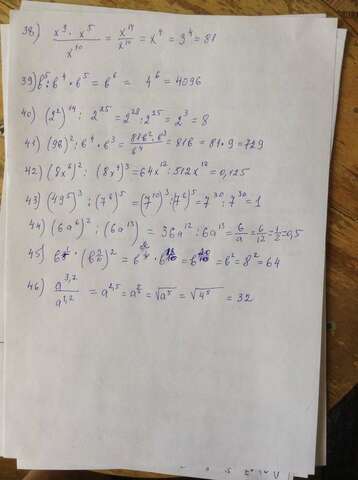 38) x⁹ · x⁵ / x¹⁰ = x¹⁴ / x¹⁰ = x⁴ = 3⁴ = 81
39) b⁵ : b⁴ · b⁵ = b⁶ 4⁶ = 4096
40) (2²)¹⁴ : 2²⁵ = 2²⁸ : 2²⁵ = 2³ = 8
41) (9b)² : b⁴ · b³ = 81b² · b³ / b⁴ = 81b = 81 · 9 = 729
42) (8x⁶)² : (8x⁴)³ = 64x¹² : 512x¹² = 0,125
43) (49⁵)³ : (7⁶)⁵ = (7¹⁰)³ : (7⁶)⁵ = 7³⁰ : 7³⁰ = 1
44) (6a⁶)² : (6a¹³) = 36a¹² : 6a¹³ = 6/a = 6/12 = 1/2 = 0,5
45) · ( )² = = b² = 8² = 64
46) a³,⁷ / a¹,² = a²,⁵ = = √a⁵ = √4⁵ = 32